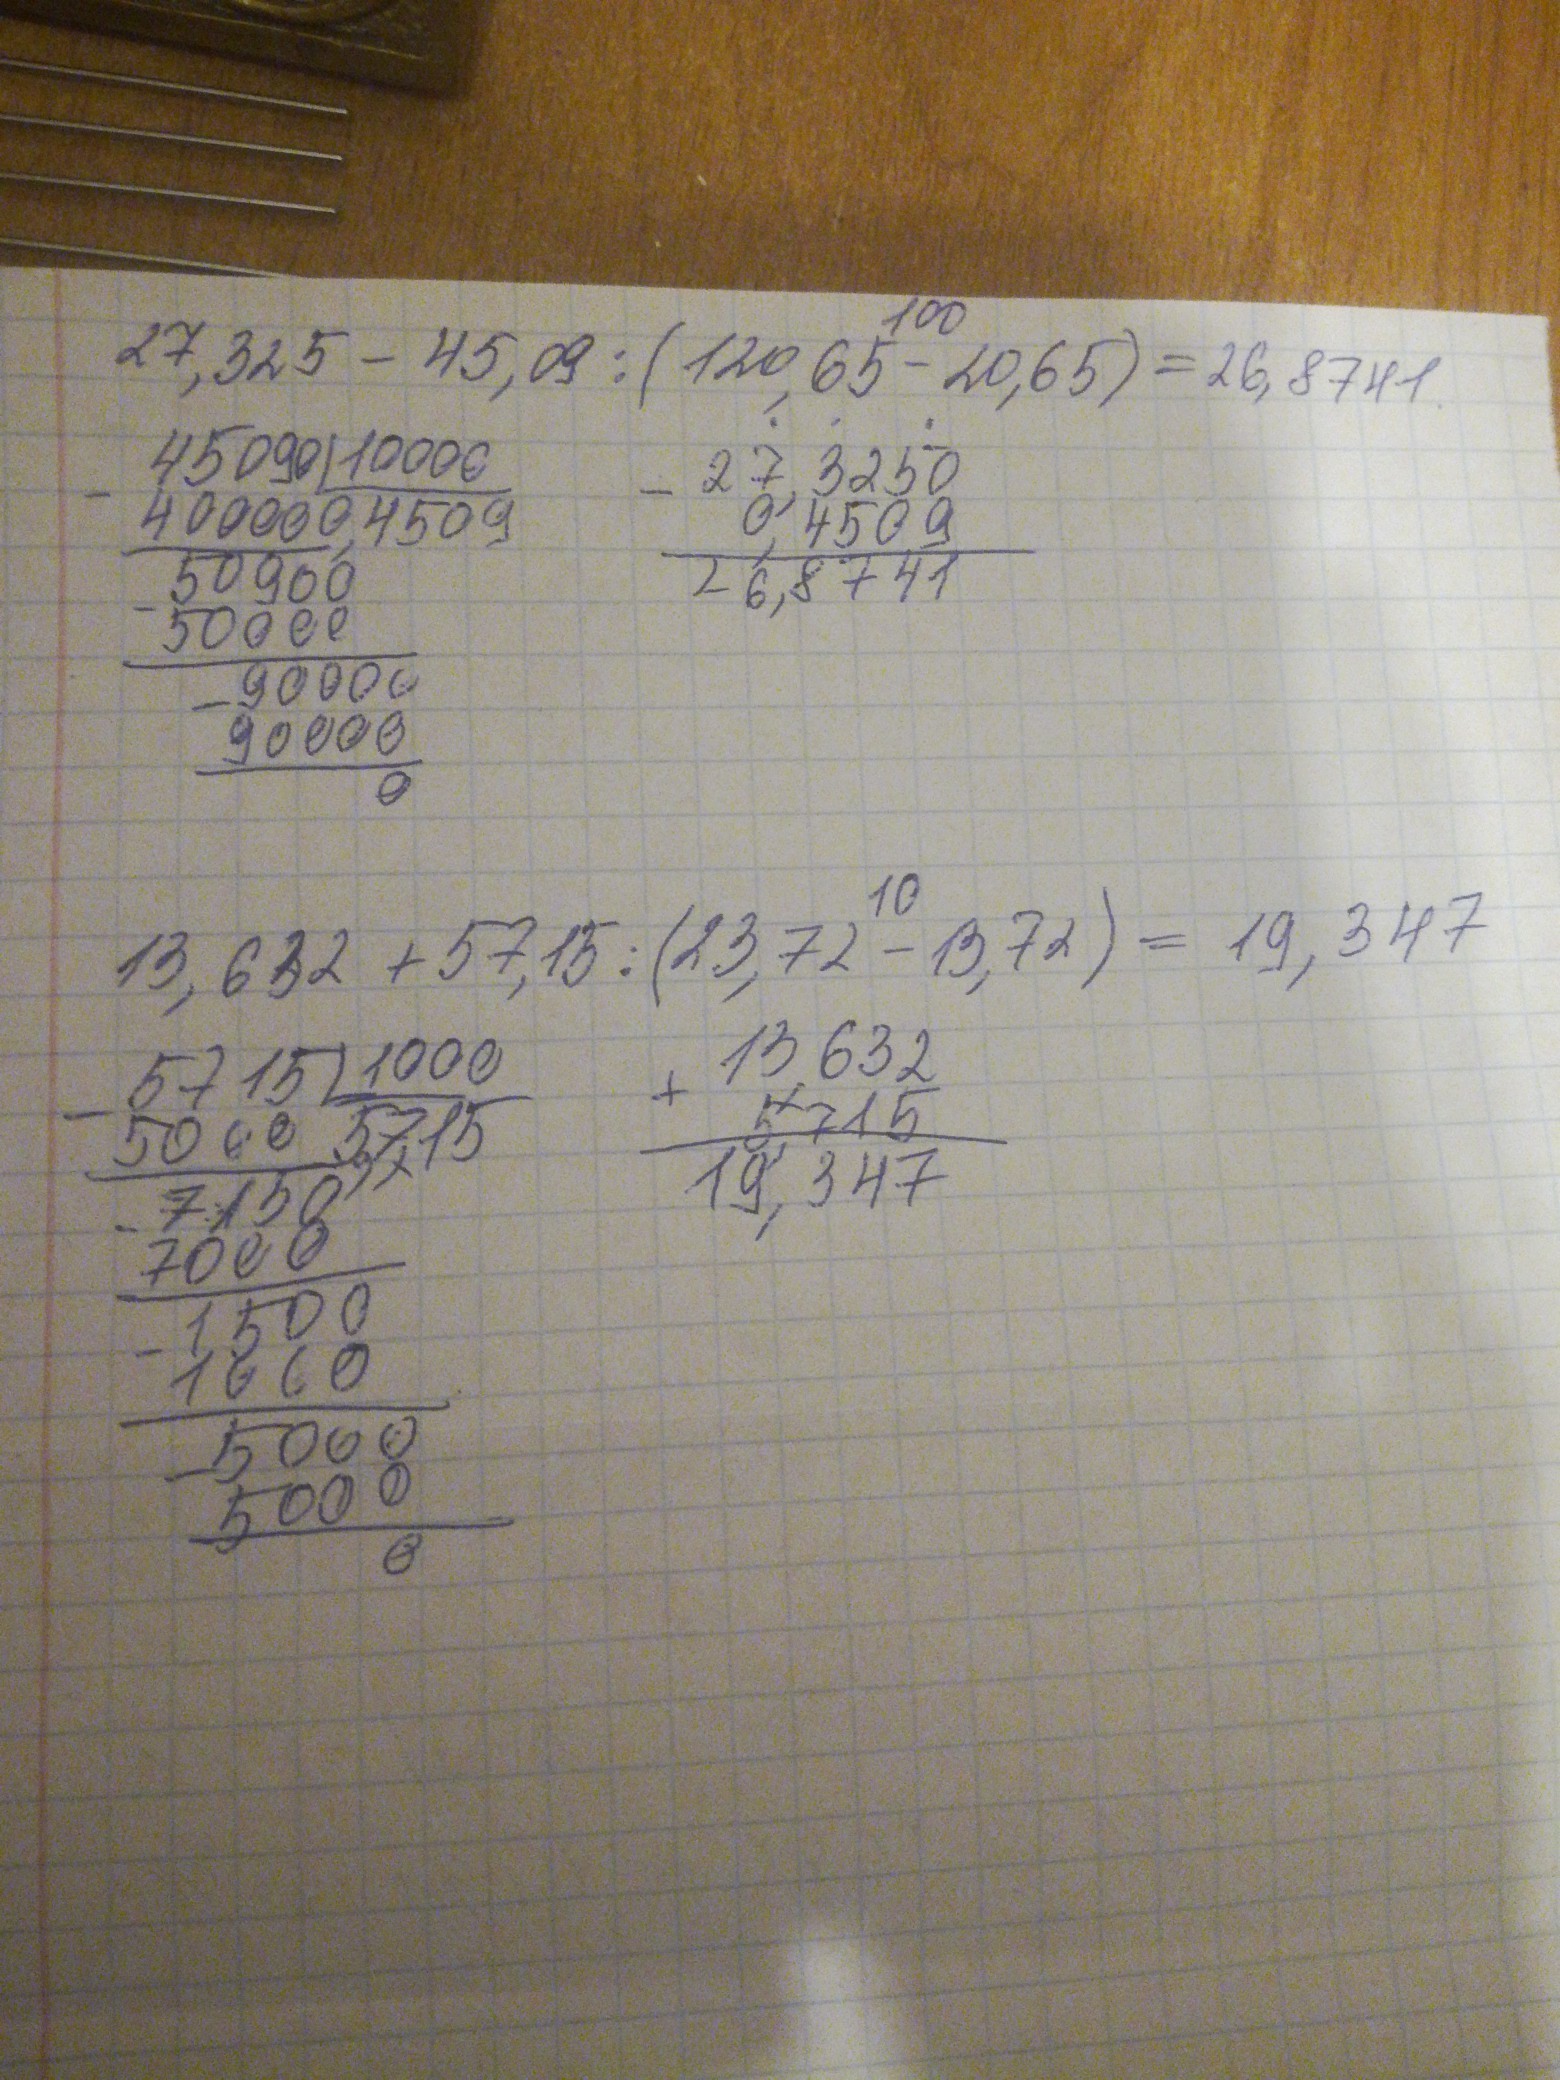 100
27,325 - 45,09 : (120,65 - 20,65) = 26,8741
45090 | 10000
- 40000 0,4509
50900
- 50000
- 90000
90000
0
- 27,3250
0,4509
26,8741
10
13,632 + 57,15 : (23,72 - 13,72) = 19,347
5715 | 1000
- 5000 5,715
7150
- 7000
1500
- 1000
5000
- 5000
0
13,632
+ 5,715
19,347